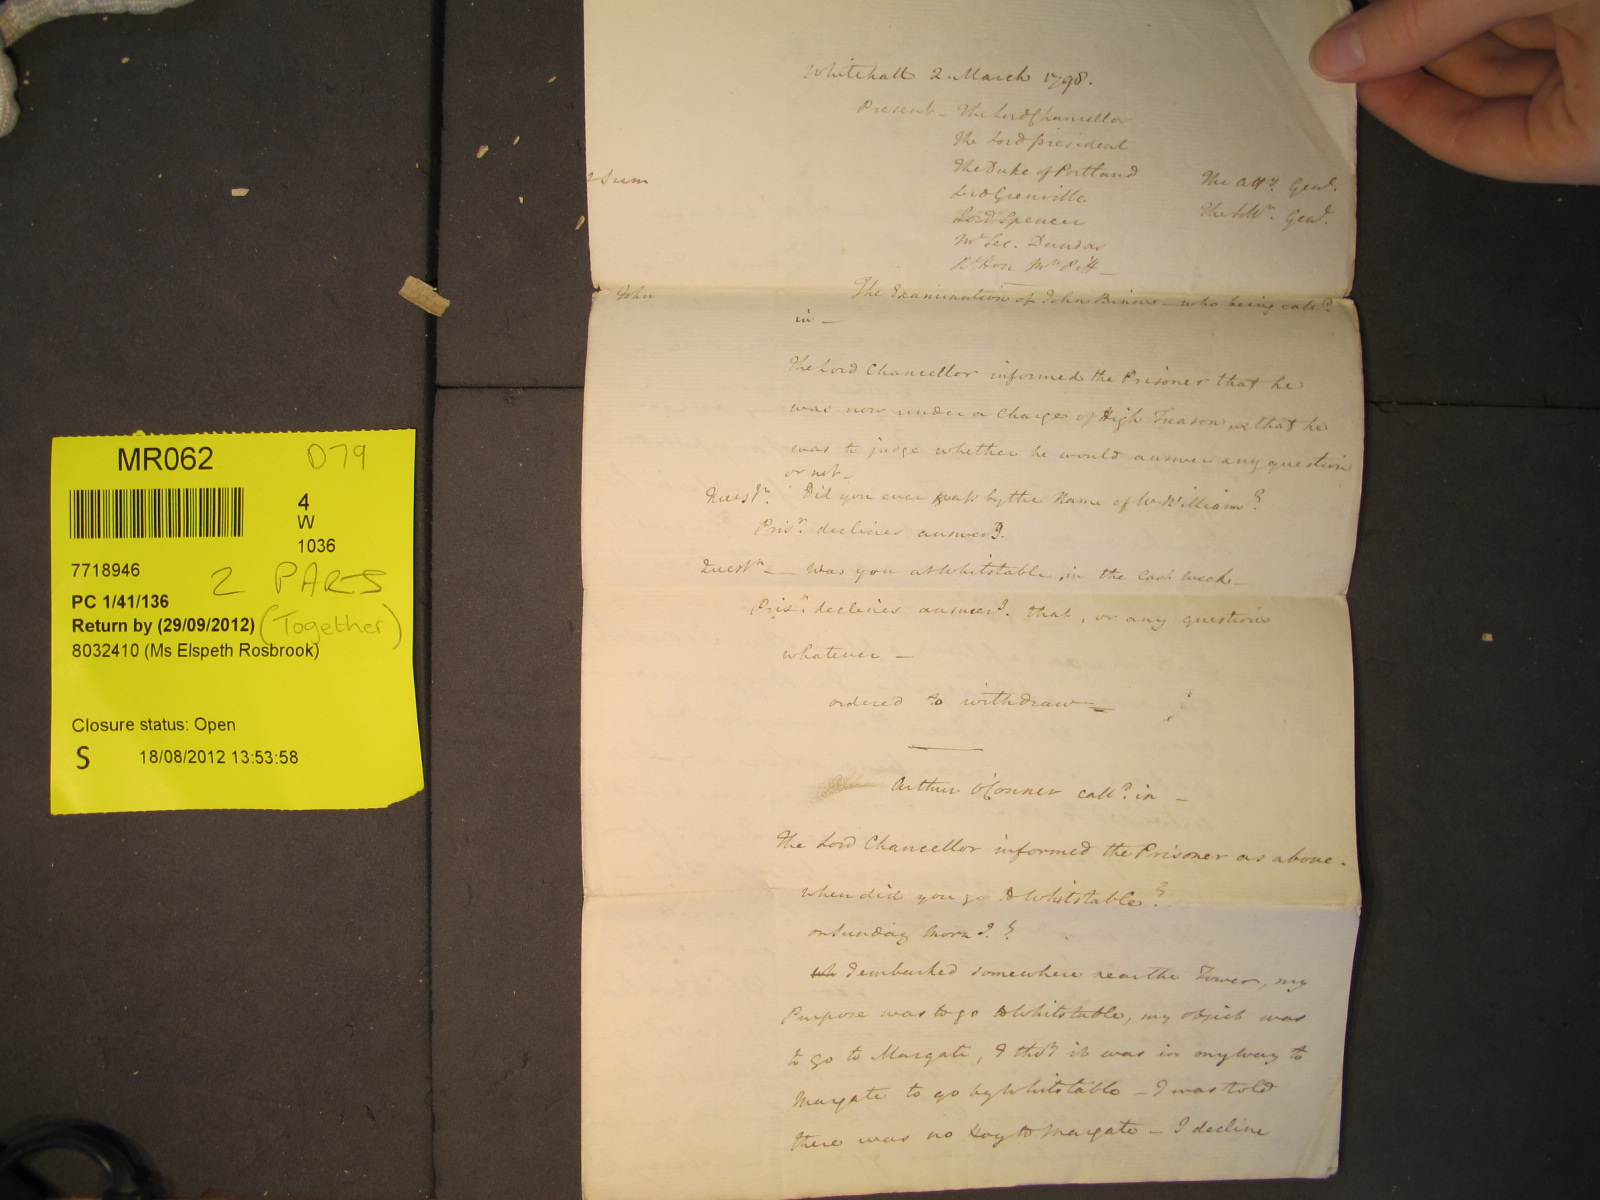 MR062
D79
4
W
1036
7718946
2 PARTS
PC 1/41/136
Return by (29/09/2012) (Together)
8032410 (Ms Elspeth Rosbrook)
Closure status: Open
S
18/08/2012 13:53:58
Whitehall 2. March 1798.
Present - The Lord Chancellor
The Lord President
The Duke of Portland
Lord Grenville
Lord Spencer
Mr Sec. Dundas
Rt Hon Mr Pitt -
The Atty. Genl.
The Solr. Genl.
John
The Examination of John Binns - who being call'd
in -
The Lord Chancellor informed the Prisoner that he
was now under a Charge of High Treason, & that he
was to judge whether he would answer any question
or not -
Questn. Did you ever pass by the Name of Williams?
Prisr. declines answerg.
Questn - Was you at Whitstable, in the last week -
Prisr. declines answerg. that, or any question
whatever -
ordered to withdraw -
Arthur O'Conner call'd in -
The Lord Chancellor informed the Prisoner as above.
when did you go to Whitstable?
on Sunday morng. ?
I embarked somewhere near the Tower, my
Purpose was to go to Whitstable, my object was
to go to Margate, I thot it was in my way to
Margate to go by Whitstable - I was told
there was no Hoy to Margate - I decline